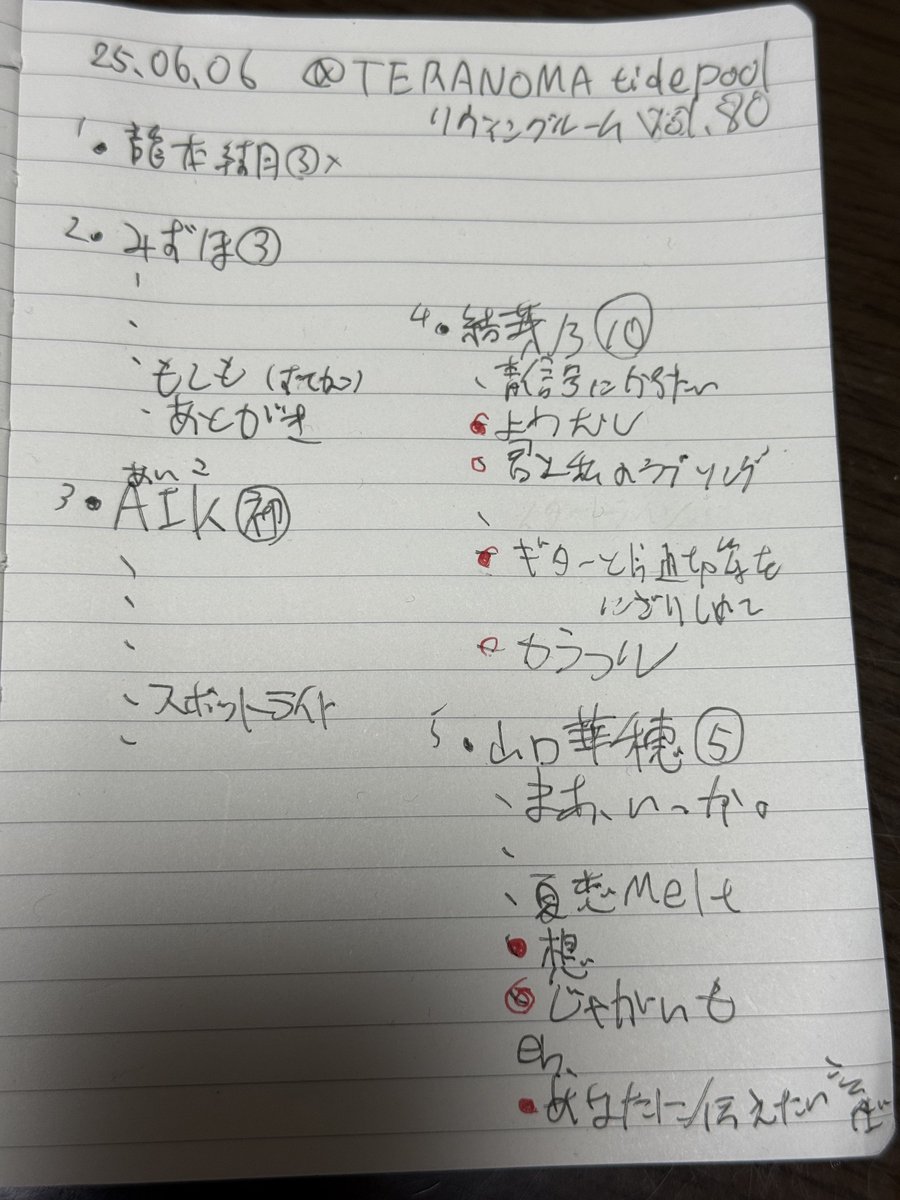 25.06.06 @TERANOMA tidepool
リヴィングルーム vol.80
1. 龍本結月③×
2. みずほ③
もしも
あとがき
あいこ
3. AIK 初
スポットライト
4. 結葉 13 ⑩
青信号になりたい
よわむし
君と私のラブソング
ギターと片道切符を
にぎりしめて
もうつい
5. 山口華穂⑤
まあ、いっか。
夏恋Melt
想
じゃがいも
en.
あなたに伝えたい